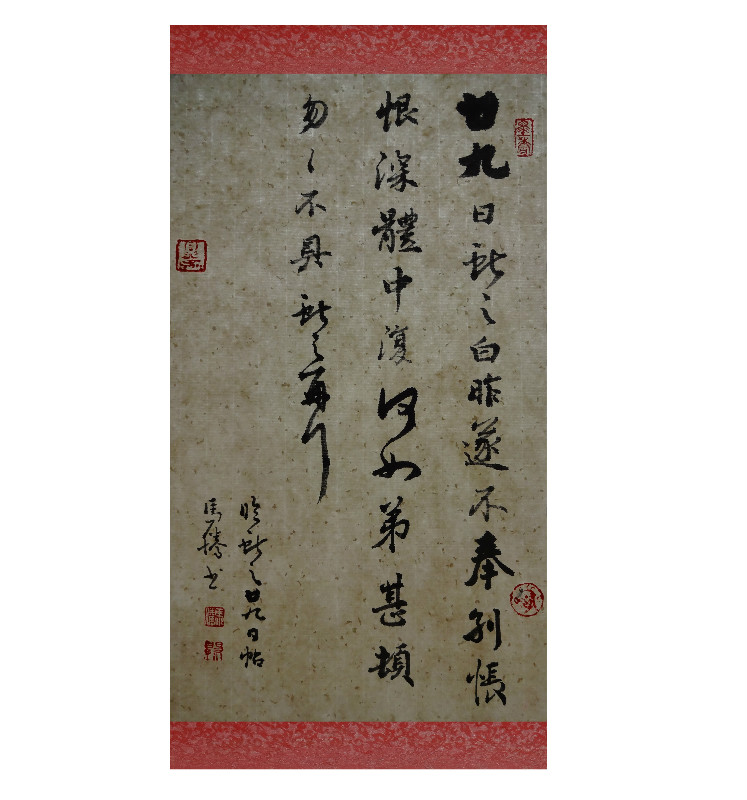 廿九日獻之白昨遂不奉別悵
恨深體中復何如弟甚頓
勿〻不具獻之再行
臨獻之廿九日帖
馬騰書